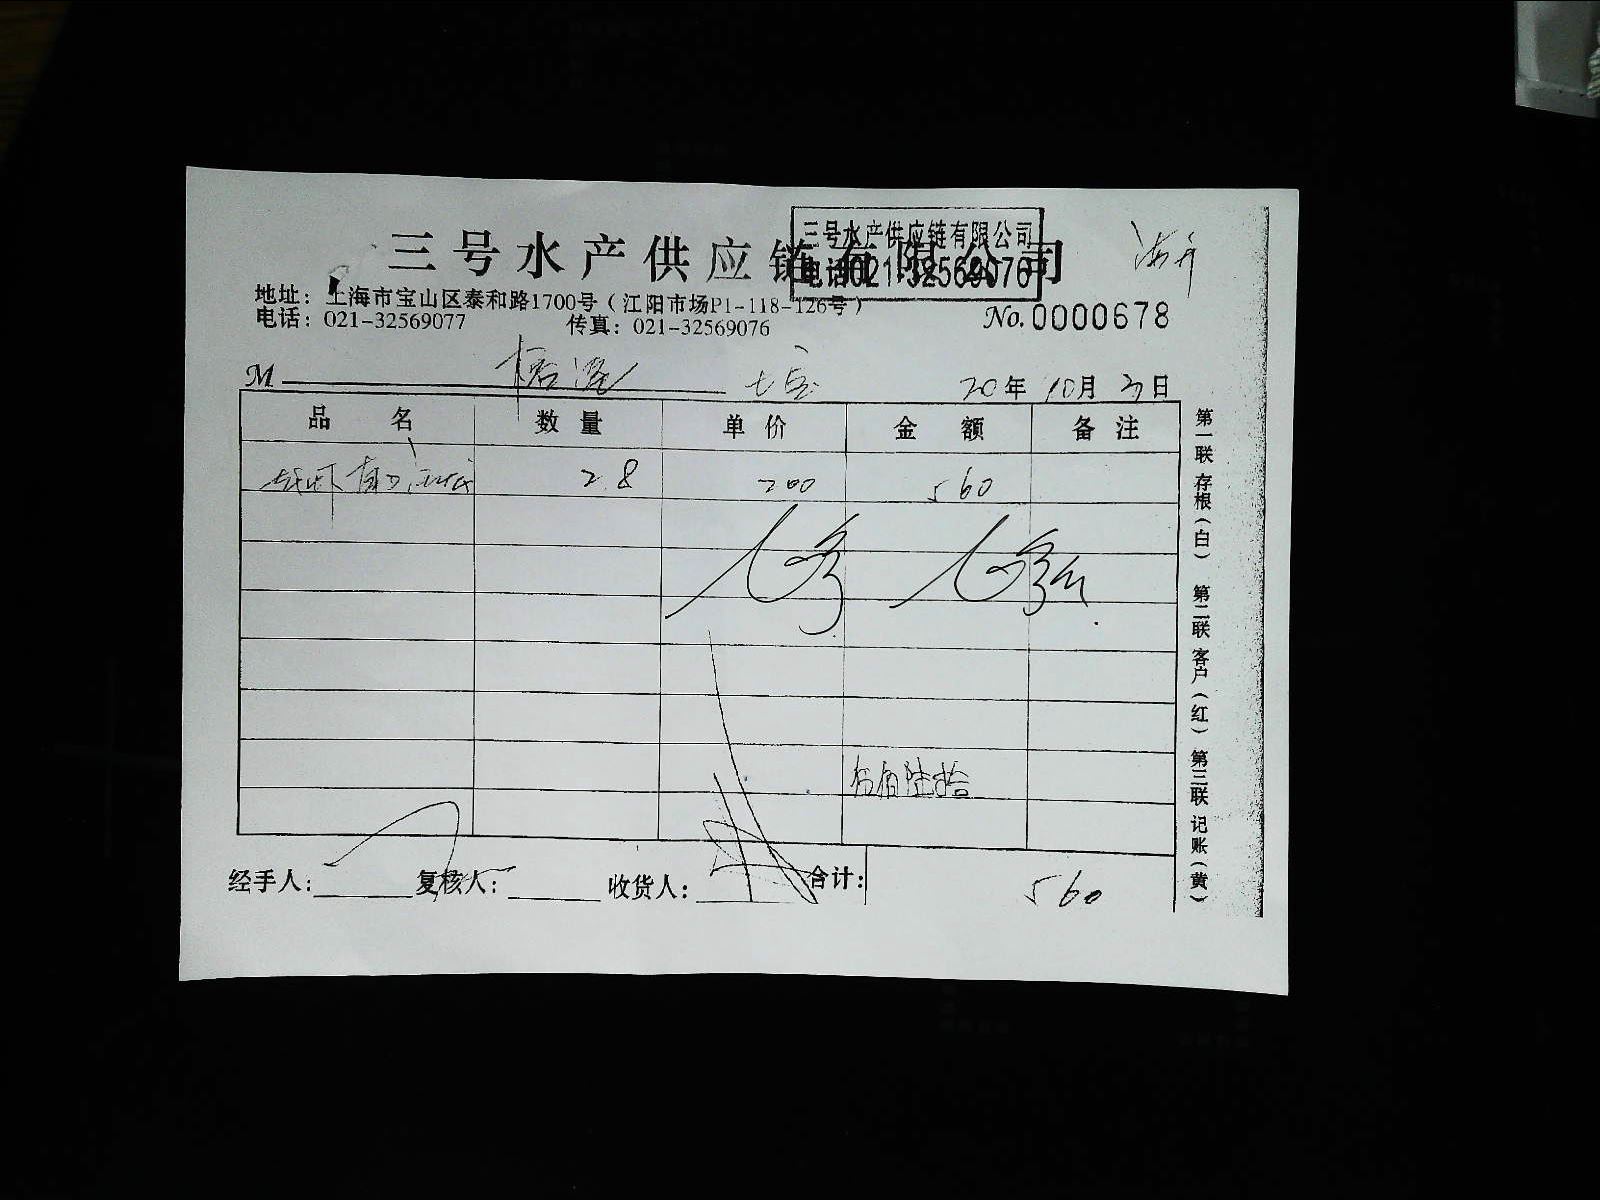 三号水产供应链有限公司
三号水产供应链有限公司
电话021-32569076
地址：上海市宝山区泰和路1700号（江阳市场P1-118-126号）
电话：021-32569077 传真：021-32569076
No.0000678
M
20年10月 日
品名 数量 单价 金额 备注
2.8 200 560
伍佰陆拾
经手人： 复核人： 收货人： 合计： 560
第一联 存根（白） 第二联 客户（红） 第三联 记账（黄）